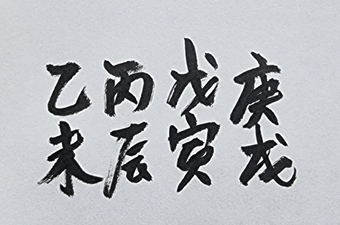 庚戌
戊寅
丙辰
乙未